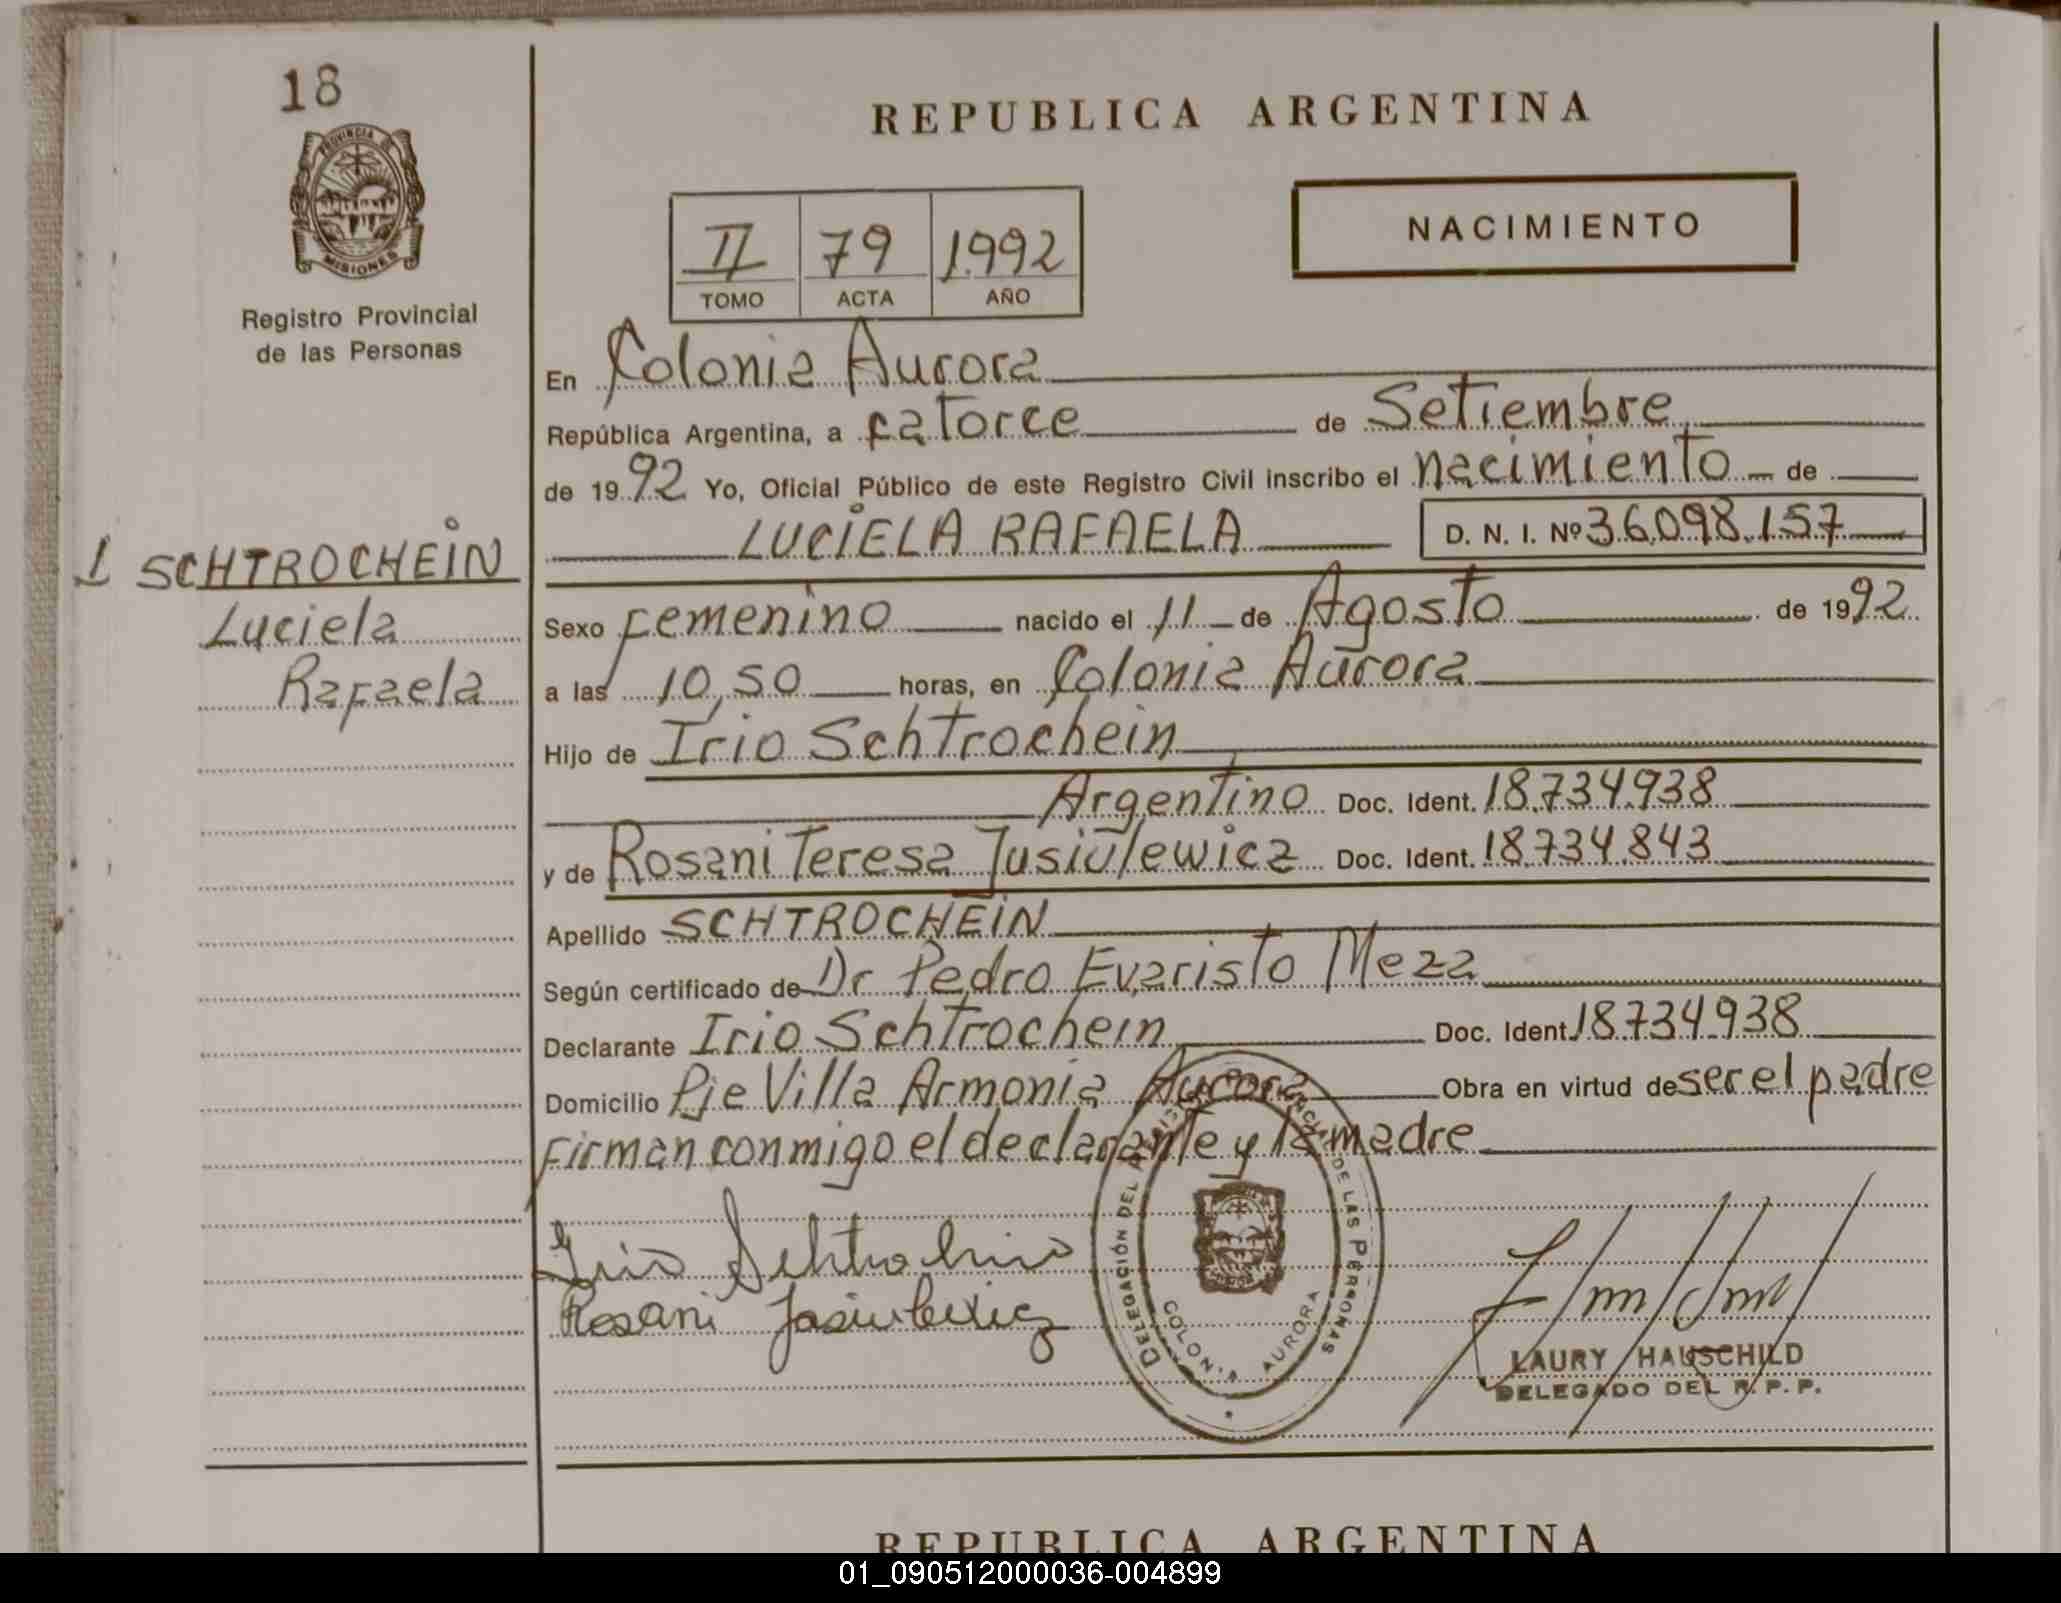 18
PROVINCIA DE
MISIONES
Registro Provincial
de las Personas
REPUBLICA ARGENTINA
II 79 1992
TOMO ACTA AÑO
NACIMIENTO
En Colonia Aurora
República Argentina, a catorce de Setiembre
de 1992 Yo, Oficial Público de este Registro Civil inscribo el nacimiento de
LUCIELA RAFAELA D. N. I. Nº 36.098.157
1 SCHTROCHEIN
Luciela
Rafaela
Sexo femenino nacido el 11 de Agosto de 1992
a las 10,50 horas, en Colonia Aurora
Hijo de Irio Schtrochein
Argentino Doc. Ident. 18.734.938
y de Rosani Teresa Jusiulewicz Doc. Ident. 18.734.843
Apellido SCHTROCHEIN
Según certificado de Dr Pedro Evaristo Meza
Declarante Irio Schtrochein Doc. Ident. 18.734.938
Domicilio Pje Villa Armonia Aurora Obra en virtud de ser el padre
Firman conmigo el declarante y la madre
Irio Schtrochein
Rosani Jasiulewicz
DELEGACIÓN DEL REGISTRO PROVINCIAL DE LAS PERSONAS
COLONIA AURORA
LAURY HAUSCHILD
DELEGADO DEL R. P. P.
REPUBLICA ARGENTINA
01_090512000036-004899